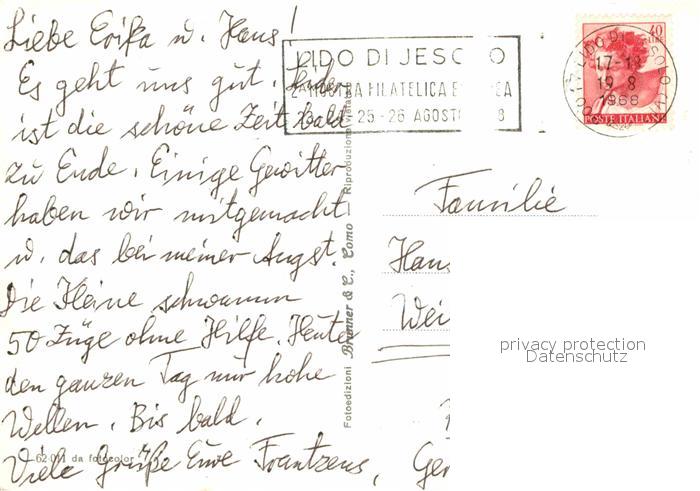 Liebe Erika u. Hans!
Es geht uns gut. Leider
ist die schöne Zeit bald
zu Ende. Einige Gewitter
haben wir mitgemacht
u. das bei meiner Angst.
Die Kleine schwamm
50 Züge ohne Hilfe. Heute
den ganzen Tag nur hohe
Wellen. Bis bald.
Viele Grüße Eure Frantzens,
62-011 da fotocolor
Fotoedizioni Brunner & C., Como
LIDO DI JESOLO
MOSTRA FILATELICA
25-26 AGOSTO
LIDO DI JESOLO
17-18
19 8
1968
40
LIRE
POSTE ITALIANE
Familie
Hans
Wei
Ger
privacy protection
Datenschutz